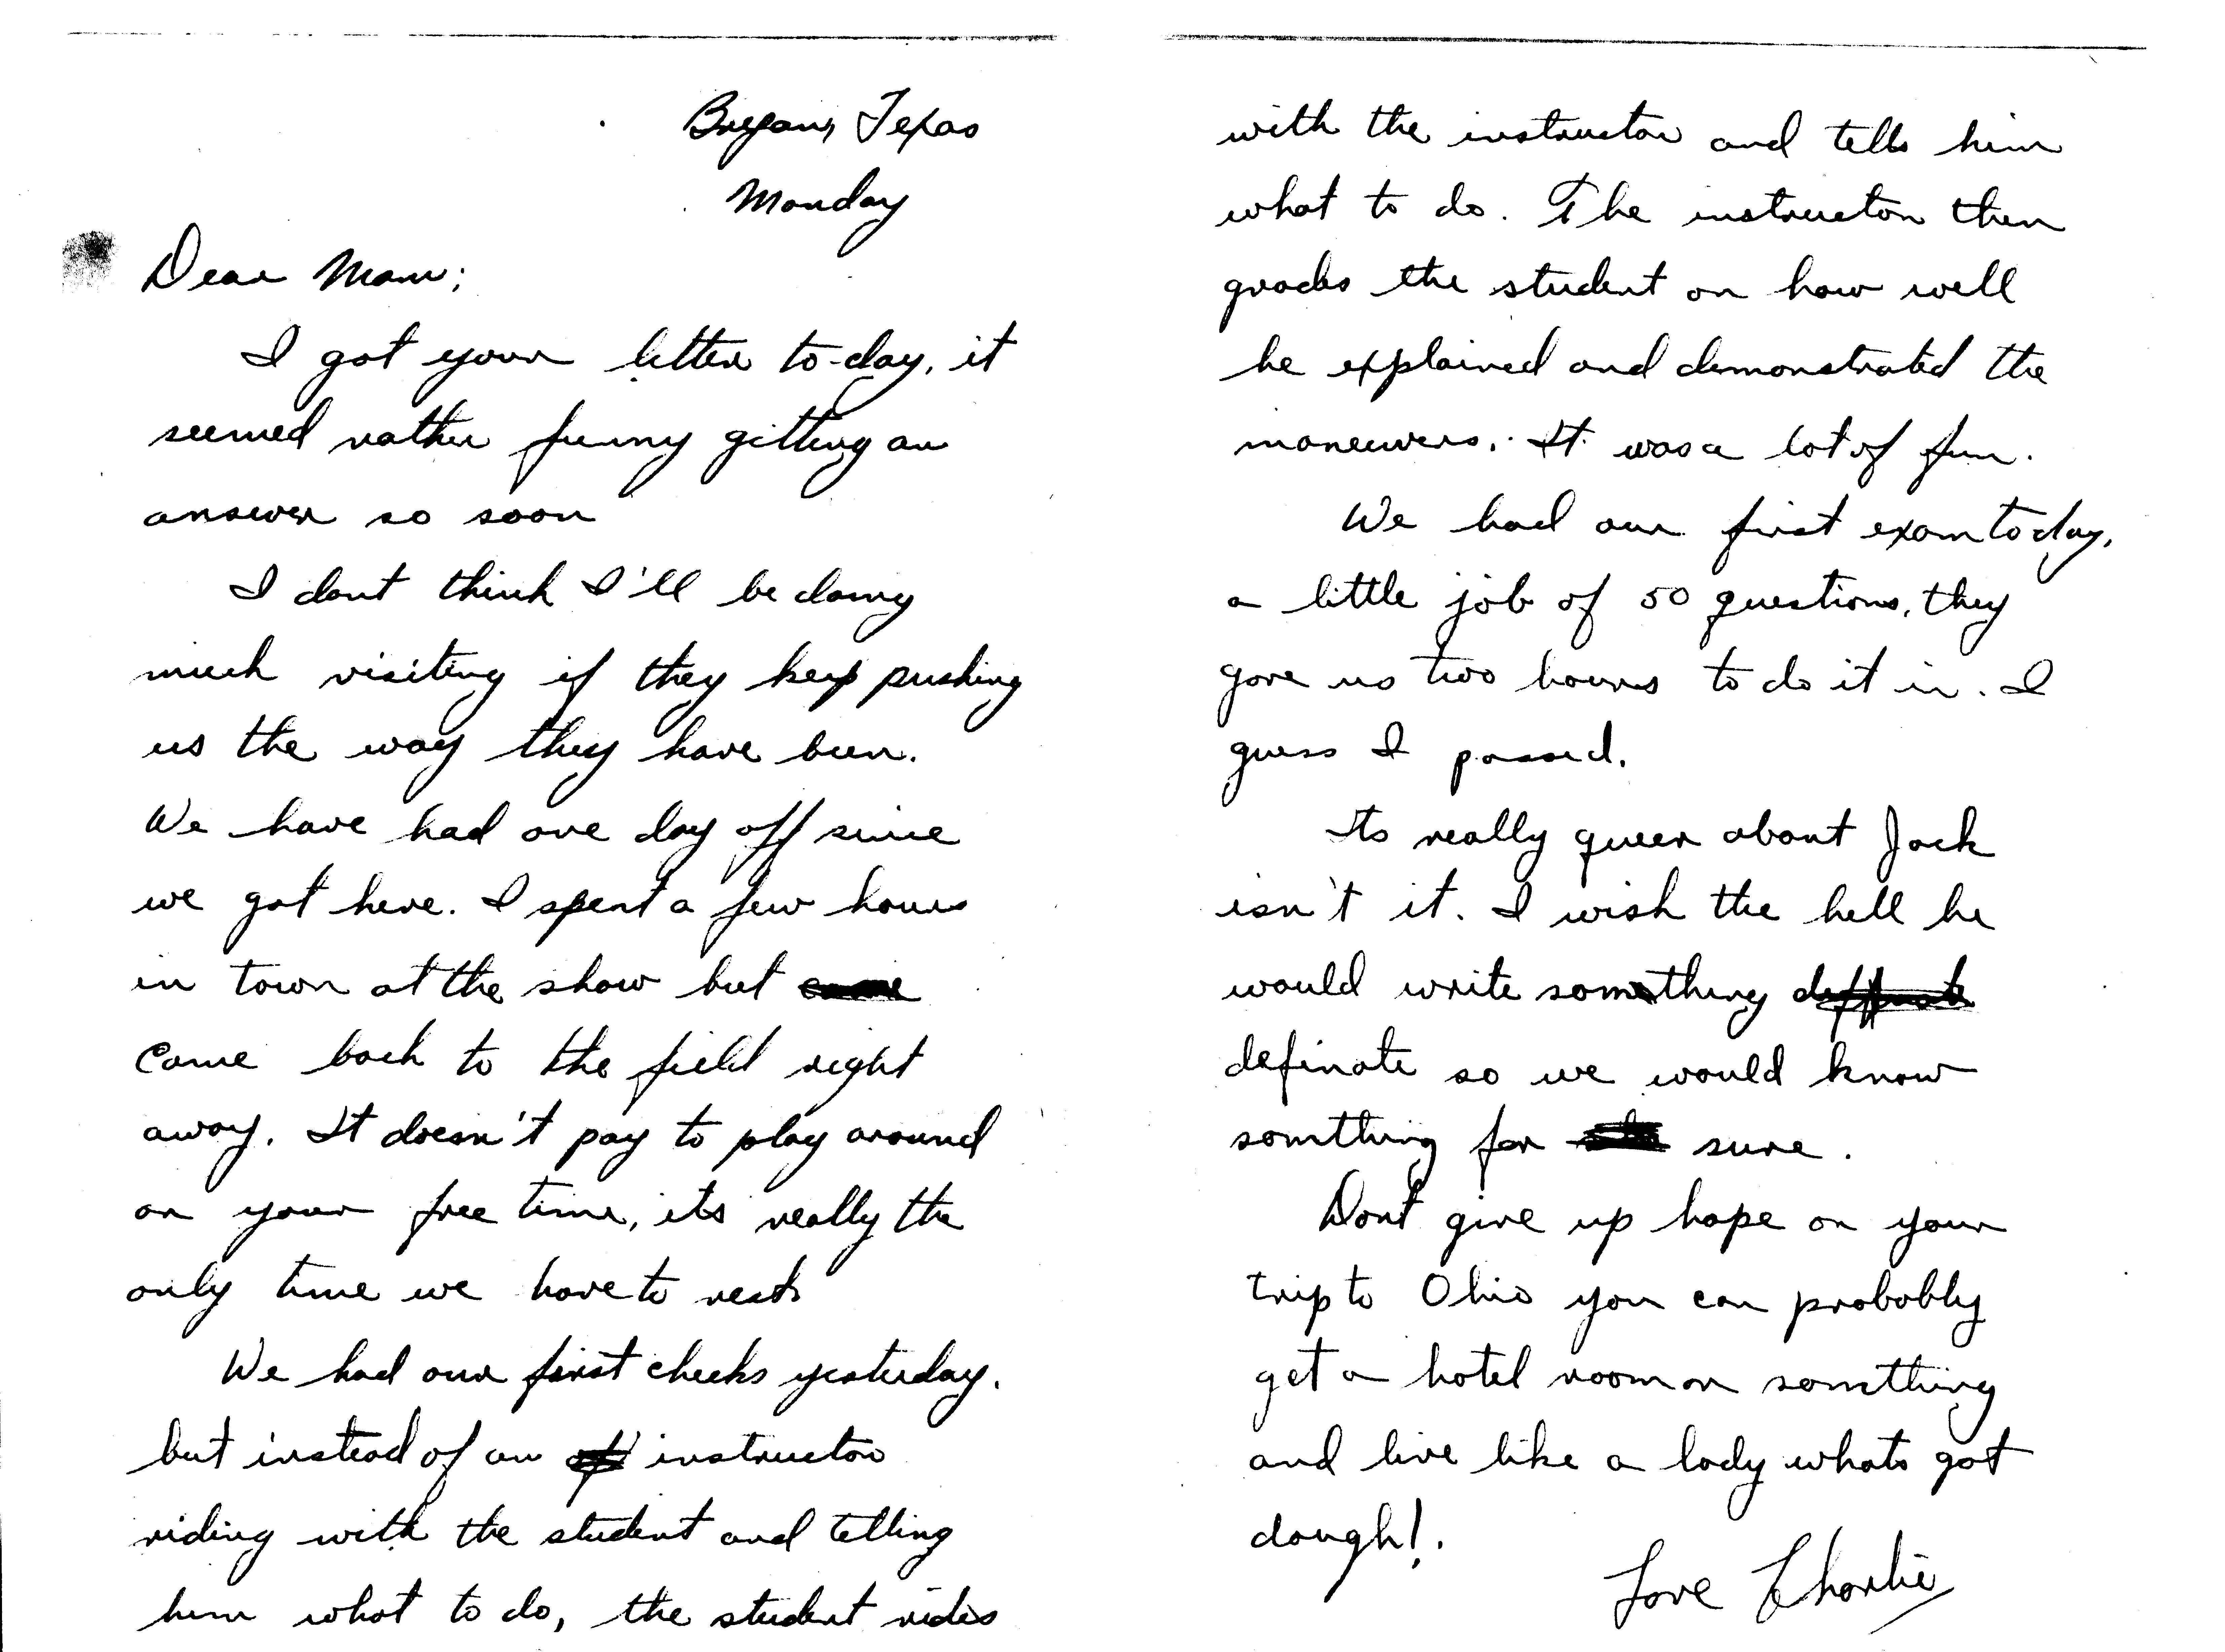 Bryan, Texas
Monday
Dear Mom;
I got your letter to-day, it
seemed rather funny gitting an
answer so soon
I dont think I'll be doing
much visiting if they keep pushing
us the way they have been.
We have had one day off since
we got here. I spent a few hours
in town at the show but came
came back to the field right
away. It doesn't pay to play around
on your free time, its really the
only time we have to rest.
We had our first checks yesterday.
but instead of an instructor
riding with the student and telling
him what to do, the student rides
with the instructor and tells him
what to do. The instructor then
grades the student on how well
he explained and demonstrated the
maneuvers. It was a lot of fun.
We had our first exam today,
a little job of 50 questions, they
gave us two hours to do it in. I
guess I passed.
Its really queer about Jack
isn't it. I wish the hell he
would write something
definate so we would know
somthing for sure.
Dont give up hope on your
trip to Ohio you can probobly
get a hotel room or somthing
and live like a lady whats got
dough!.
Love Charlie